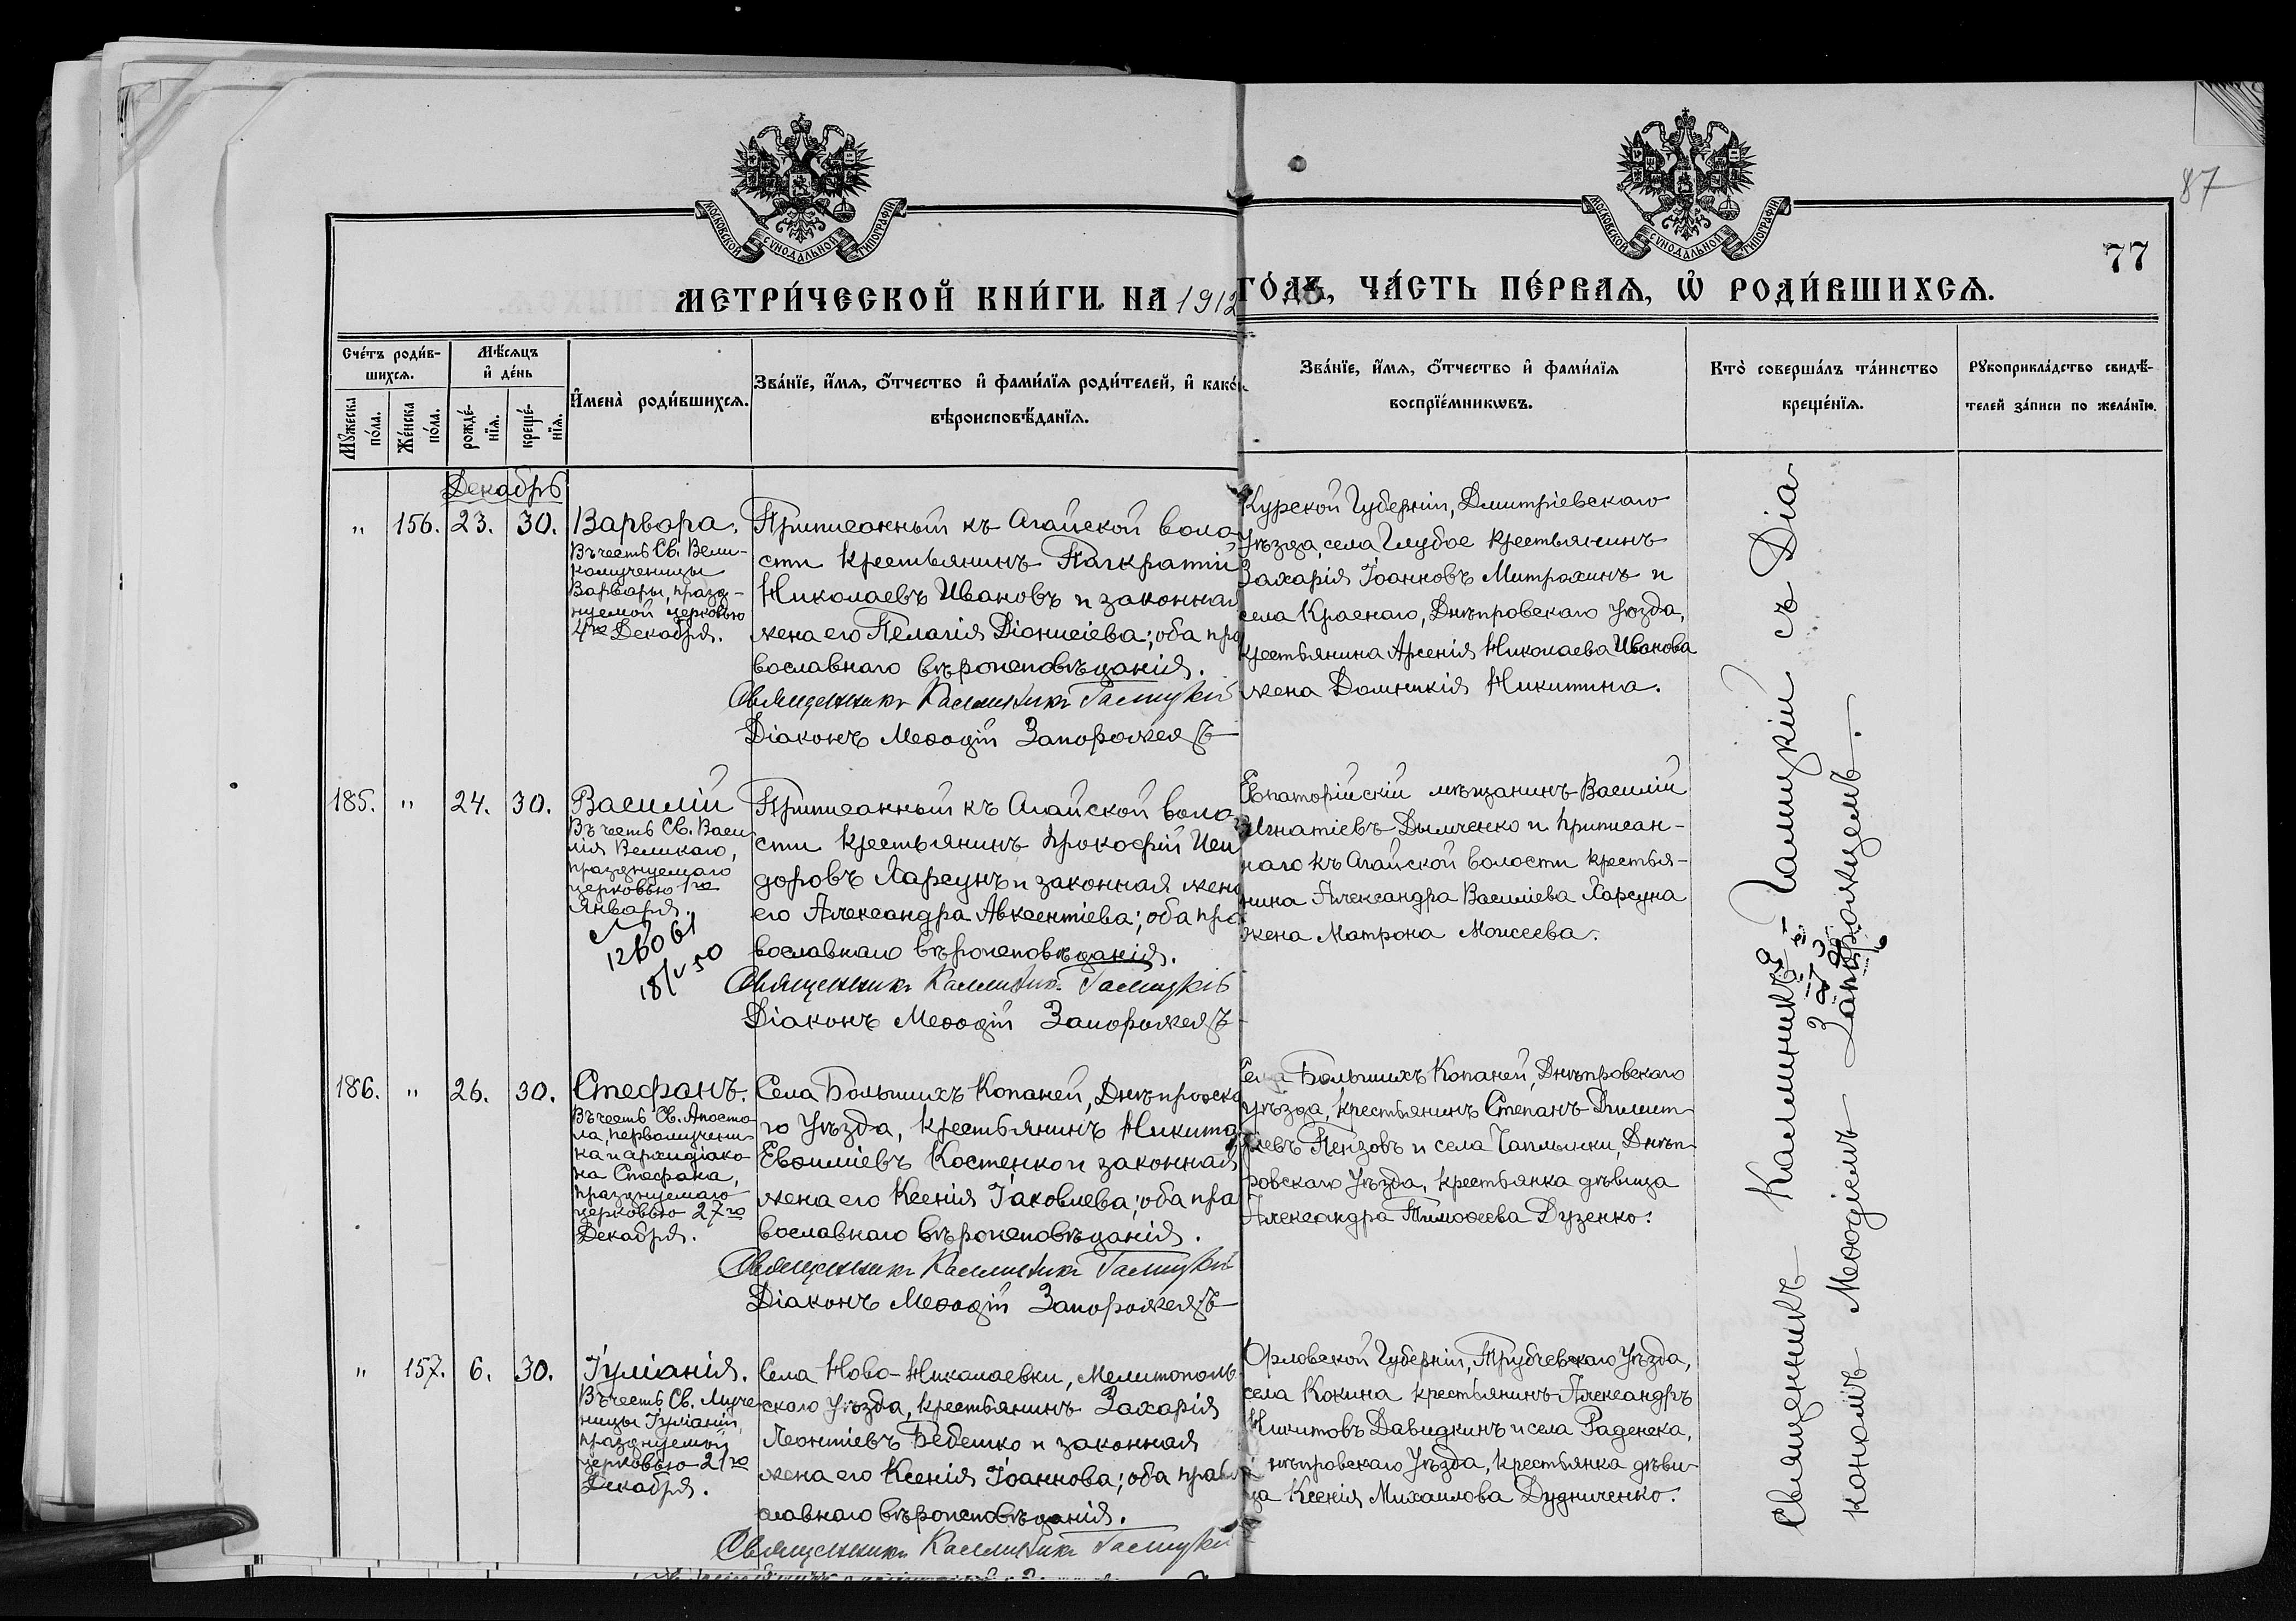 87
77
МОСКОВСКОЙ СѴНОДАЛЬНОЙ ТИПОГРАФІИ
МОСКОВСКОЙ СѴНОДАЛЬНОЙ ТИПОГРАФІИ
МЕТРИ́ЧЕСКОЙ КНИ́ГИ НА 1912 ГО́ДЪ, ЧА́СТЬ ПЕ́РВАѦ, Ѡ҆ РОДИ́ВШИХСѦ.
Сче́тъ роди́в-
шихсѧ.
Мꙋ́жеска по́ла.
Же́нска по́ла.
Мѣ́сѧцъ
и҆ де́нь
рожде́-
нїѧ.
креще́-
нїѧ.
И҆мена̀ роди́вшихсѧ.
Зва́нїе, и҆́мѧ, ѻ҆́тчество и҆ фами́лїѧ роди́телей, и҆ како́
вѣроисповѣ́данїѧ.
Зва́нїе, и҆́мѧ, ѻ҆́тчество и҆ фами́лїѧ
воспрїе́мникѡвъ.
Кто̀ соверша́лъ та́инство
креще́нїѧ.
Рꙋкоприкла́дство свидѣ́-
телей за́писи по жела́нїю.
Декабрь
" 156. 23. 30.
Варвара.
Въ честь Св. Вели-
комученицы
Варвары, празд-
нуемой церковью
4го Декабря.
Приписанный къ Агайской воло-
сти крестьянинъ Панкратій
Николаевъ Ивановъ и законная
жена его Пелагія Діонисіева; оба пра
вославнаго вѣроисповѣданія.
Священникъ Каллиникъ Галицкій
Діаконъ Меѳодій Запорожецъ
Курской Губерніи, Дмитріевскаго
Уѣзда, села Глубое крестьянинъ
Захарія Іоанновъ Митрохинъ и
села Краснаго, Днѣпровскаго Уѣзда,
крестьянина Арсенія Николаева Иванова
жена Домникія Никитина.
185. " 24. 30.
Василій
Въ честь Св. Васи
лія Великаго,
празднуемаго
церковью 1го
Января.
18/V 50
Приписанный къ Агайской воло-
сти крестьянинъ Прокофій Иси
доровъ Ларсунъ и законная жена
его Александра Авксентіева; оба пра
вославнаго вѣроисповѣданія.
Священникъ Каллиникъ Галицкій
Діаконъ Меѳодій Запорожецъ
Евпаторійскій мѣщанинъ Василій
Игнатіевъ Дымченко и приписан-
наго къ Агайской волости крестья-
нина Александра Василіева Ларсуна
жена Матрона Моисеева.
186. " 26. 30.
Стефанъ.
Въ честь Св. Апосто
ла, первомучени-
ка и архидіако
на Стефана,
празднуемаго
церковью 27го
Декабря.
Села Большихъ Копаней, Днѣпровска
го Уѣзда, крестьянинъ Никита
Евѳиміевъ Костенко и законная
жена его Ксенія Іаковлева; оба пра
вославнаго вѣроисповѣданія.
Священникъ Каллиникъ Галицкій
Діаконъ Меѳодій Запорожецъ
Села Большихъ Копаней, Днѣпровскаго
Уѣзда, крестьянинъ Степанъ Димит-
ріевъ Пензовъ и села Чаплынки, Днѣп-
ровскаго Уѣзда, крестьянка дѣвица
Александра Тимоѳеева Дузенко.
" 157. 6. 30.
Іуліанія.
Въ честь Св. Муче
ницы Іуліаніи,
празднуемой
церковью 21го
Декабря.
Села Ново-Николаевки, Мелитополь
скаго Уѣзда, крестьянинъ Захарія
Леонтіевъ Бебешко и законная
жена его Ксенія Іоаннова; оба право
славнаго вѣроисповѣданія.
Священникъ Каллиникъ Галицкій
Орловской Губерніи, Трубчевскаго Уѣзда,
села Кокина крестьянинъ Александръ
Никитовъ Давидкинъ и села Раденска,
Днѣпровскаго Уѣзда, крестьянка дѣви-
ца Ксенія Михаилова Дудниченко.
Священникъ Каллиникъ Галицкій съ Діа-
кономъ Меѳодіемъ Запорожцемъ.